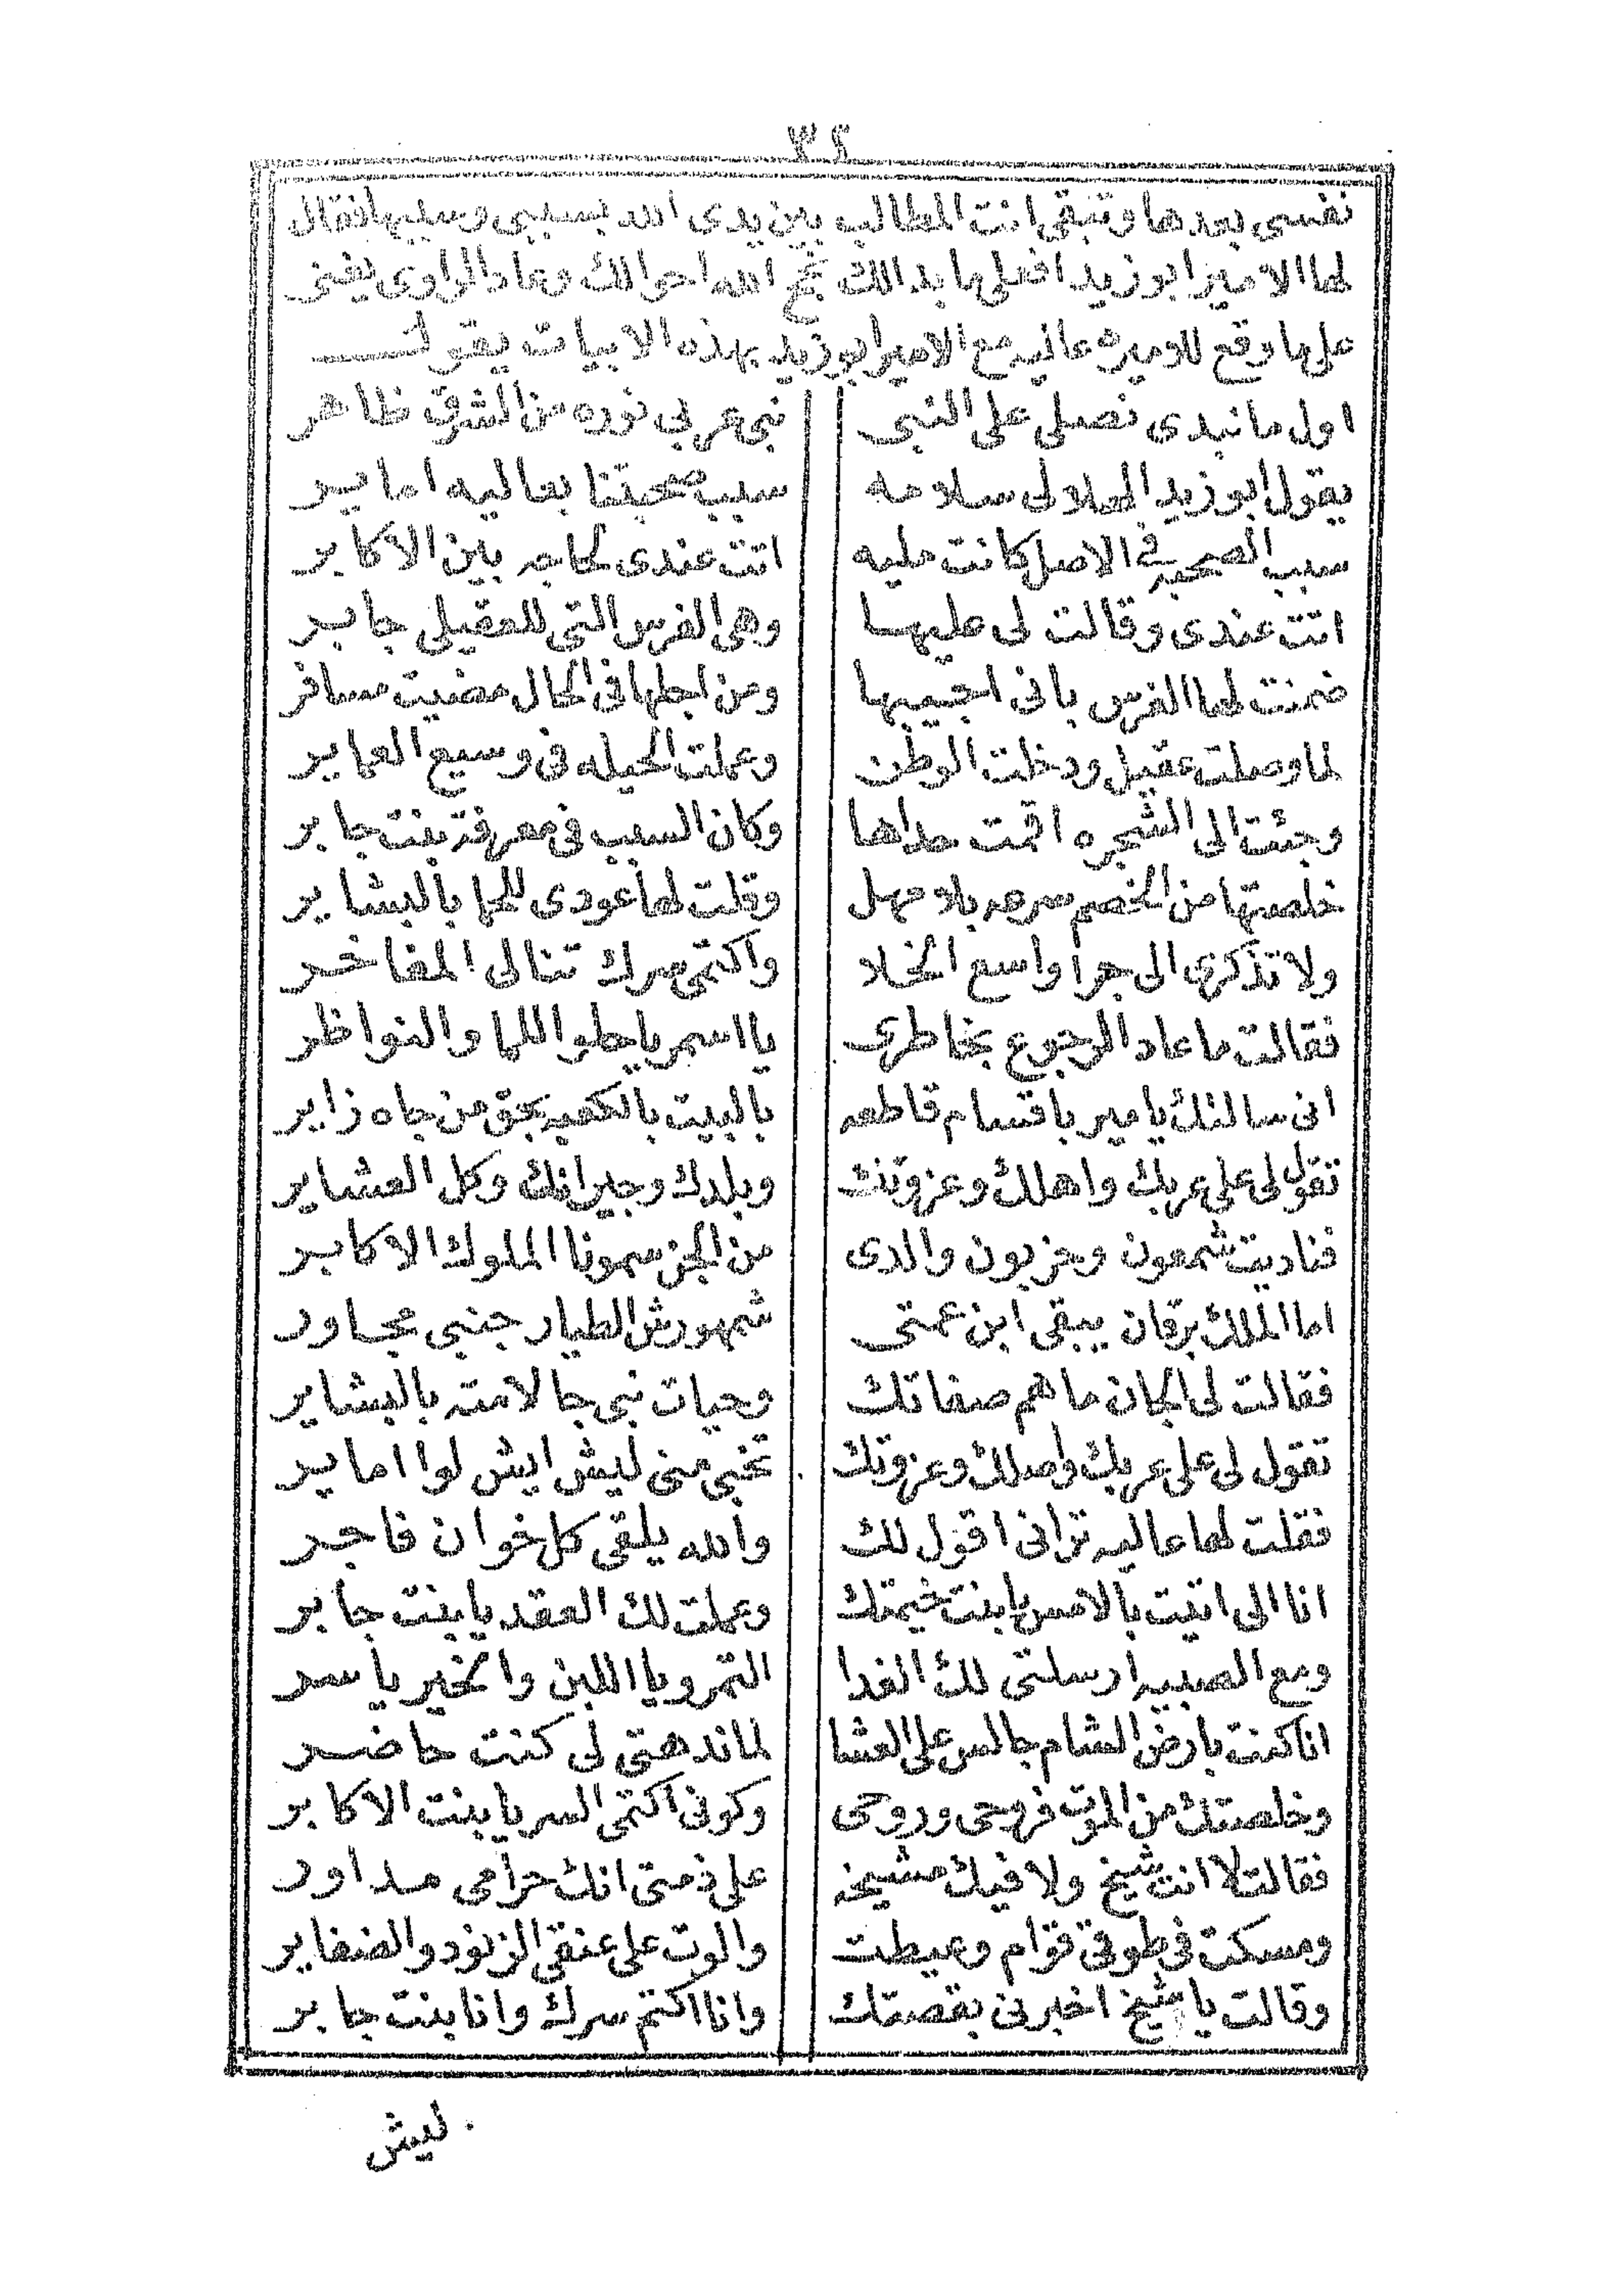 ٣٢
نفسى بعدها وتبقى انت المطالب بين يدى الله بسببى وسببها فقال
لها الامير ابو زيد افعلى ما بدالك نجح الله احوالك وعاد الراوى يغنى
على ما وقع للاميره عاليه مع الامير ابو زيد بهذه الابيات يقول
اول ما نبدى نصلى على النبى نبى عربى نوره من الشرق ظاهر
يقول ابو زيد الهلالى سلامه سبب صحبتنا بعاليه اماير
سبب الصحبه فى الاصل كانت مليه اتت عندى لحاجه بين الاكابر
اتت عندى وقالت لى عليها وهى الفرس التى للعقيلى جابر
ضمنت لها الفرس بانى اجيبها ومن اجلها فى الحال مضيت مسافر
لما وصلت عقيل ودخلت الوطن وعملت الحيله فى وسيع العماير
وجئت الى الشجره اقمت حداها وكان السبب فى معرفة بنت جابر
خلصتها من الخصم سرعه بلا مهل وقلت لها عودى للحما بالبشاير
ولا تذكرى الى جرا واسع الخلا واكتمى سرك تنالى المفاخر
فقالت ما عاد الرجوع بخاطرى يا اسمر يا حلو اللما والنواظر
انى سالتك يا مير باقسام قاطعه بالبيت بالكعبه بحق من جاه زاير
تقول لى على عربك واهلك وعزوتك وبلدك وجيرانك وكل العشاير
فناديت شمعون وحزبون والدى من الجن سمونا الملوك الاكابر
اما الملك برقان يبقى ابن عمتى شمهورش الطيار جنبى مجاور
فقالت لى الجان ما هم صفاتك وحيات نبى جا لامته بالبشاير
تقول لى على عربك واصلك وعزوتك تخبى منى ليش ايش لوا اماير
فقلت لها عاليه ترانى اقول لك والله يلقى كل خوان فاجر
انا الى اتيت بالامس يا بنت خيمتك وعملت لك العقد يا بنت جابر
ومع الصبيه ارسلتى لك الغدا التمر ويا اللبن والخير ياسر
انا كنت بارض الشام جالس على العشا لما ندهتى لى كنت حاضر
وخلصتك من الموت فرحى وروحى وكونى اكتمى السر يا بنت الاكابر
فقالت لا انت شيخ ولا فيك مشيخه على ذمتى انك حرامى مداور
ومسكت فى طوقى قوام وعيطت والوت على عنقى الزنود والضفاير
وقالت يا شيخ اخبرنى بقصتك وانا اكتم سرك وانا بنت جابر
ليش